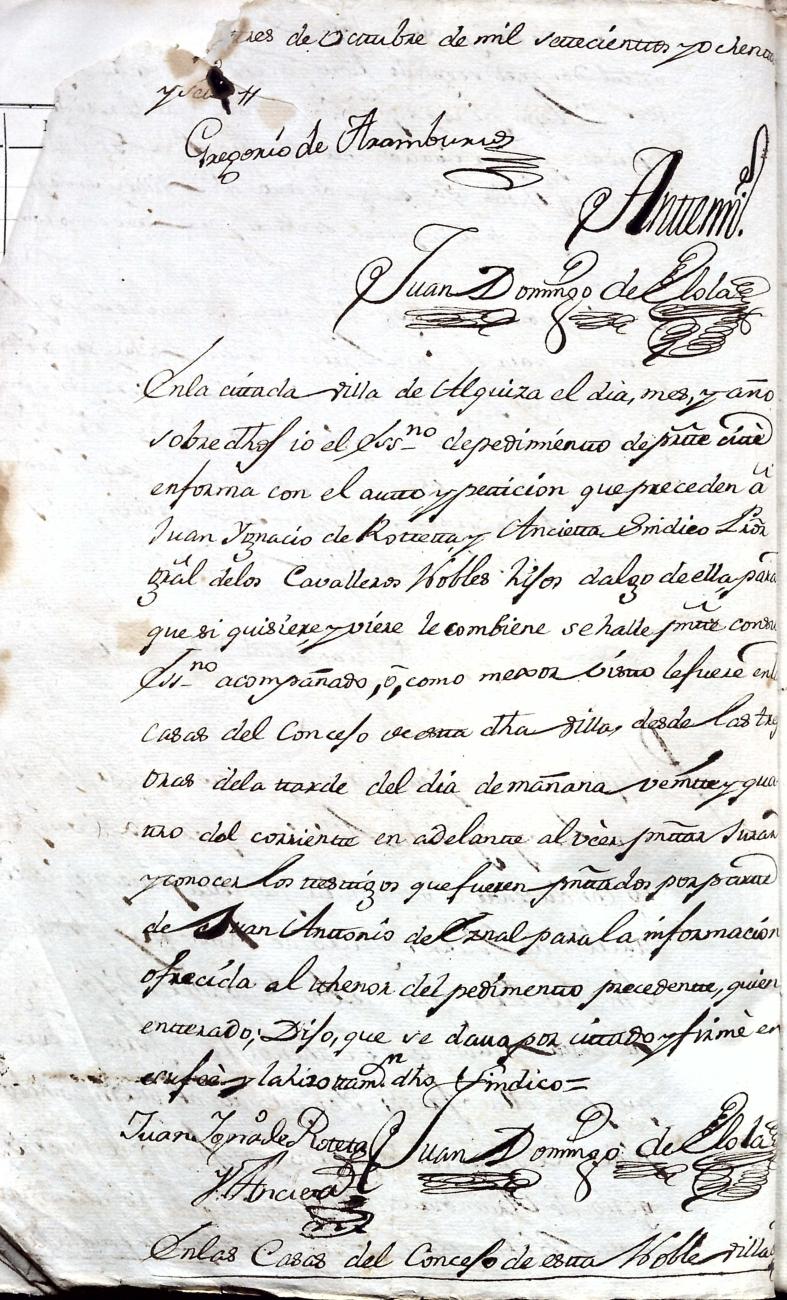 tres de Octtubre de mil settecienttos y ochentta
y seis
Gregorio de Aramburu
Anttemi.
Juan Domingo de Elola
Enla cittada villa de Alquiza el dia, mes, y año
sobre dhos io el Ss.no de pedimientto de prtte citté
en forma con el autto y petticion que preceden â
Juan Ygnacio de Rottetta y Ancietta Sindico Pror
gral delos Cavalleros Nobles hijos dalgo de ella para
que si quisiere, y viere le combiene se halle pntte con su
Ss.no acompañado, ô, como mexor visto le fuere en las
casas del Concejo de estta dha villa, desde las tres
oras dela ttarde del dia de mañana veintte y qua
ttro del corriente en adelantte al veer pnttar Jurar
y conocer los testtigos que fueren pnttados por partte
de Juan Anttonio de Eznal para la informacion
ofrecida al thenor del pedimentto precedentte, quien
entterado; Dijo, que se dava por cittado y firmè en
su feè y lo hizo ttamn dho Sindico =
Juan Ygn.o de Roteta Juan Domingo de Elola
y Ancieta
Enlas Casas del Concejo de estta Noble villa